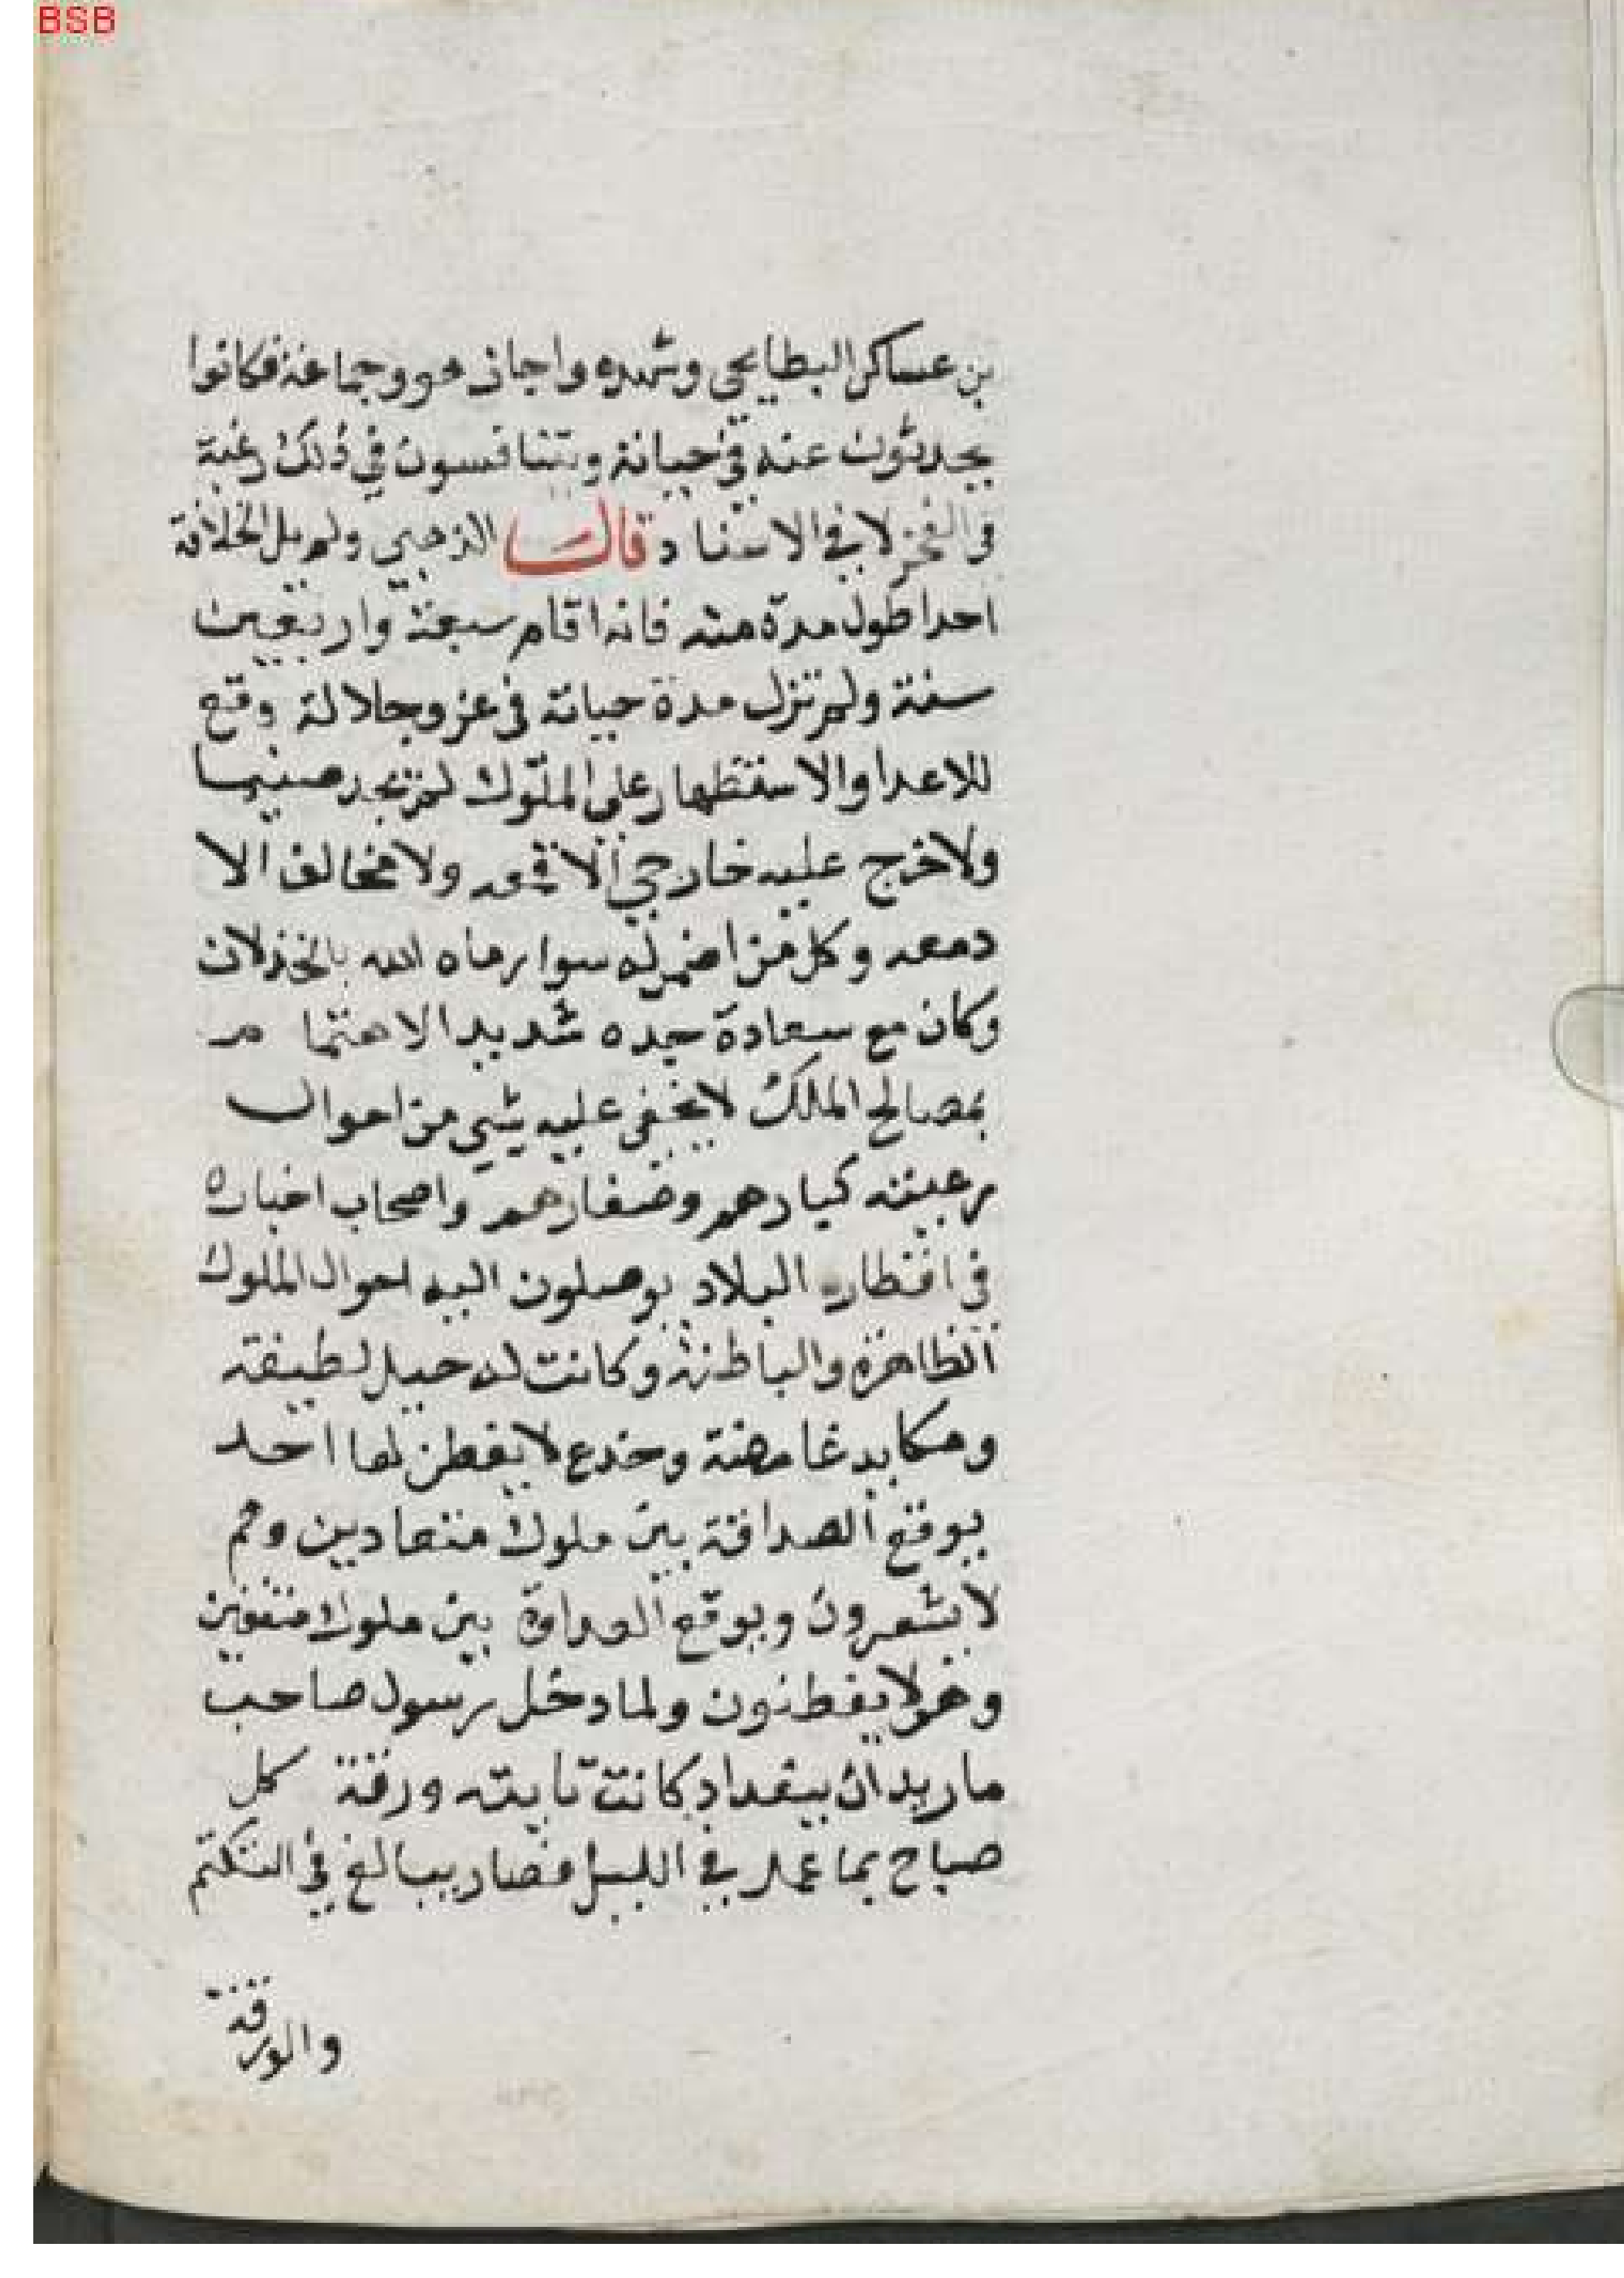 BSB
بن عساكر البطايحي وشهده واجاز هو وجماعة فكانوا
يحدثون عنه في حياته ويتنافسون في ذلك رغبة
في الفخر لا في الاسناد قال الذهبي ولم يل الخلافة
احد اطول مدة منه فانه اقام سبعة واربعين
سنة ولم تزل مدة حياته في عز وجلالة وقع
للاعدا والاستظهار على الملوك لم يجد ضيما
ولا خرج عليه خارجي الا قمعه ولا مخالف الا
دمعه وكل من اضمر له سوا رماه الله بالخذلان
وكان مع سعادة جده شديد الاهتمام
بمصالح الملك لا يخفى عليه شي من احوال
رعيته كبارهم وصغارهم واصحاب اخباره
في اقطار البلاد يوصلون اليه احوال الملوك
الظاهرة والباطنة وكانت له حيل لطيفة
ومكايد غامضة وخدع لا يفطن لها احد
يوقع الصداقة بين ملوك متعادين وهم
لا يشعرون ويوقع العداوة بين ملوك متفقين
وهم لا يفطنون ولما دخل رسول صاحب
مازبدان ببغداد كانت تايته ورقة كل
صباح بما عمل في الليل فصار يبالغ في التكتم
والورقة